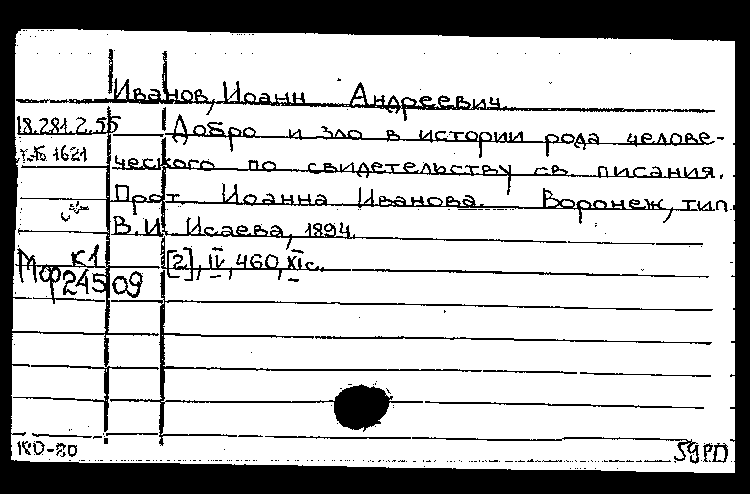 Иванов, Иоанн Андреевич
18.281.2.55
Добро и зло в истории рода челове-
1621
ческого по свидетельству св. писания.
Прот. Иоанна Иванова. Воронеж, тип.
В.И. Исаева, 1894.
К1
[2], IV, 460, XI с.
Мор 24509